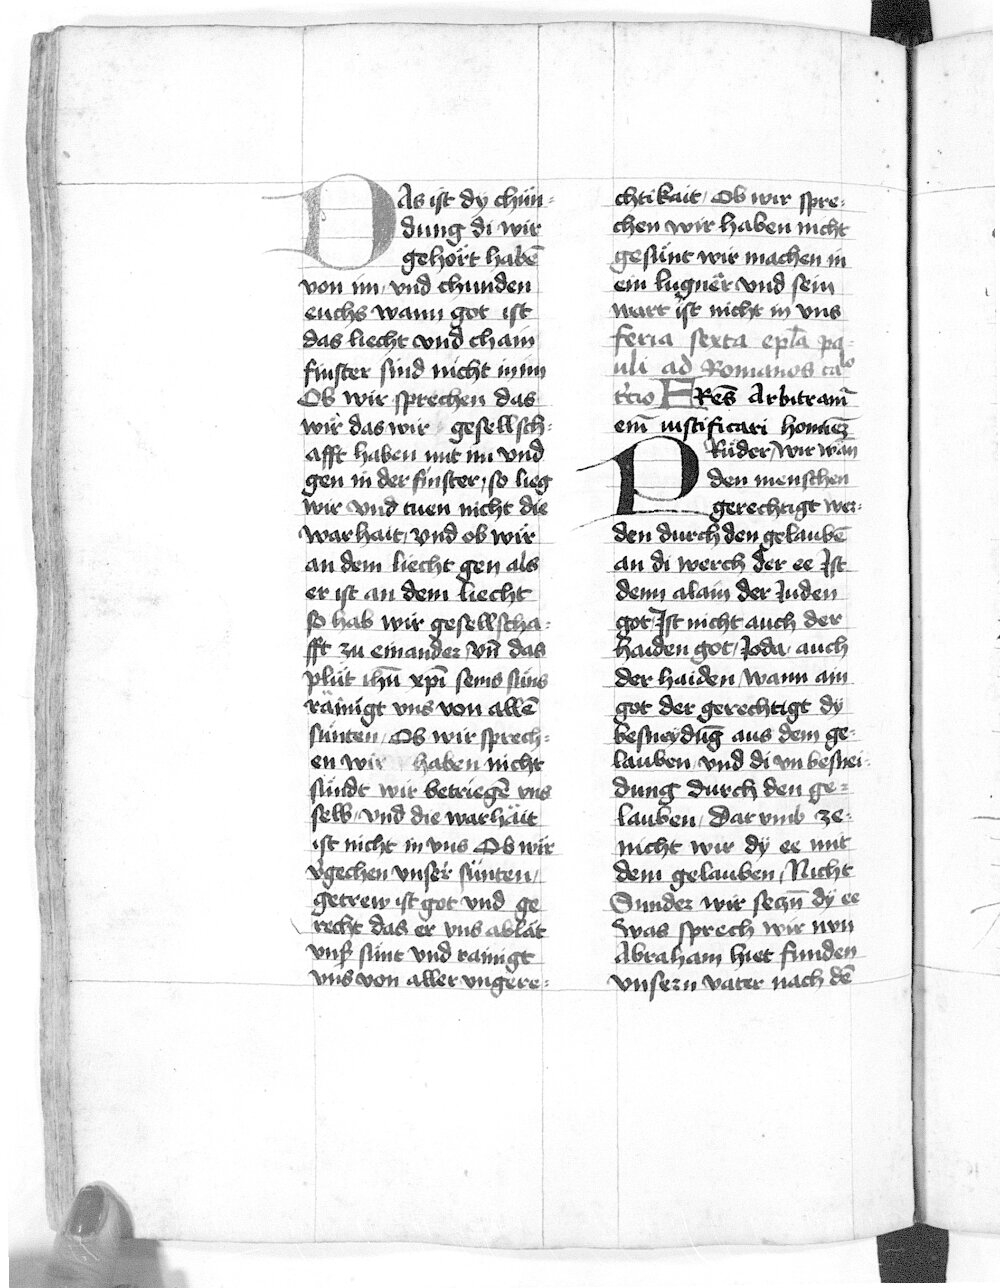 DAs ist dy chün-
dung di wir
gehört habē
von im, vnd chunden
euchs wann got ist
das liecht vnd chain
finster sind nicht in im
Ob wir sprechen das
wir das wir gesellsch-
afft haben mit im vnd
gen in der finster, so lieg
wir vnd tuen nicht die
warhait, vnd ob wir
an dem liecht gen als
er ist an dem liecht
so hab wir gesellscha-
fft zu einander vn̄ das
plüt ihū xpī seins süns
räinigt vns von allē
sünten, Ob wir sprech-
en wir haben nicht
sündt wir betriegē vns
selb, vnd die warhäit
ist nicht in vns Ob wir
v̓gechen vnser sünten,
getrew ist got vnd ge
recht das er vns ablät
vnß sünt vnd rainigt
vns von aller vngere-
chtikait, Ob wir spre-
chen wir haben nicht
gesünt wir machen in
ein lugner vnd sein
wart ist nicht in vns
feria sexta epl̄a pa-
uli ad Romanos ca͛o
tr̓cio FRēs Arbitram̄
em̄ iustificari hominez
PRüder, wir wān
den menschen
gerechtigt wer-
den durch den gelaubē
an di werch der ee Ist
denn alain der Juden
got, Ist nicht auch der
haiden got, Joda, auch
der haiden, wann ain
got der gerechtigt dy
besneydūg aus dem ge-
lauben, vnd di vnbesnei-
dung durch den ge-
lauben, Dar vmb ze-
nicht wir dy ee mit
dem gelauben, Nicht
Sunder wir seczn̄ dy ee
was sprech wir nvn
Abraham hiet funden
vnsern vater nach dē